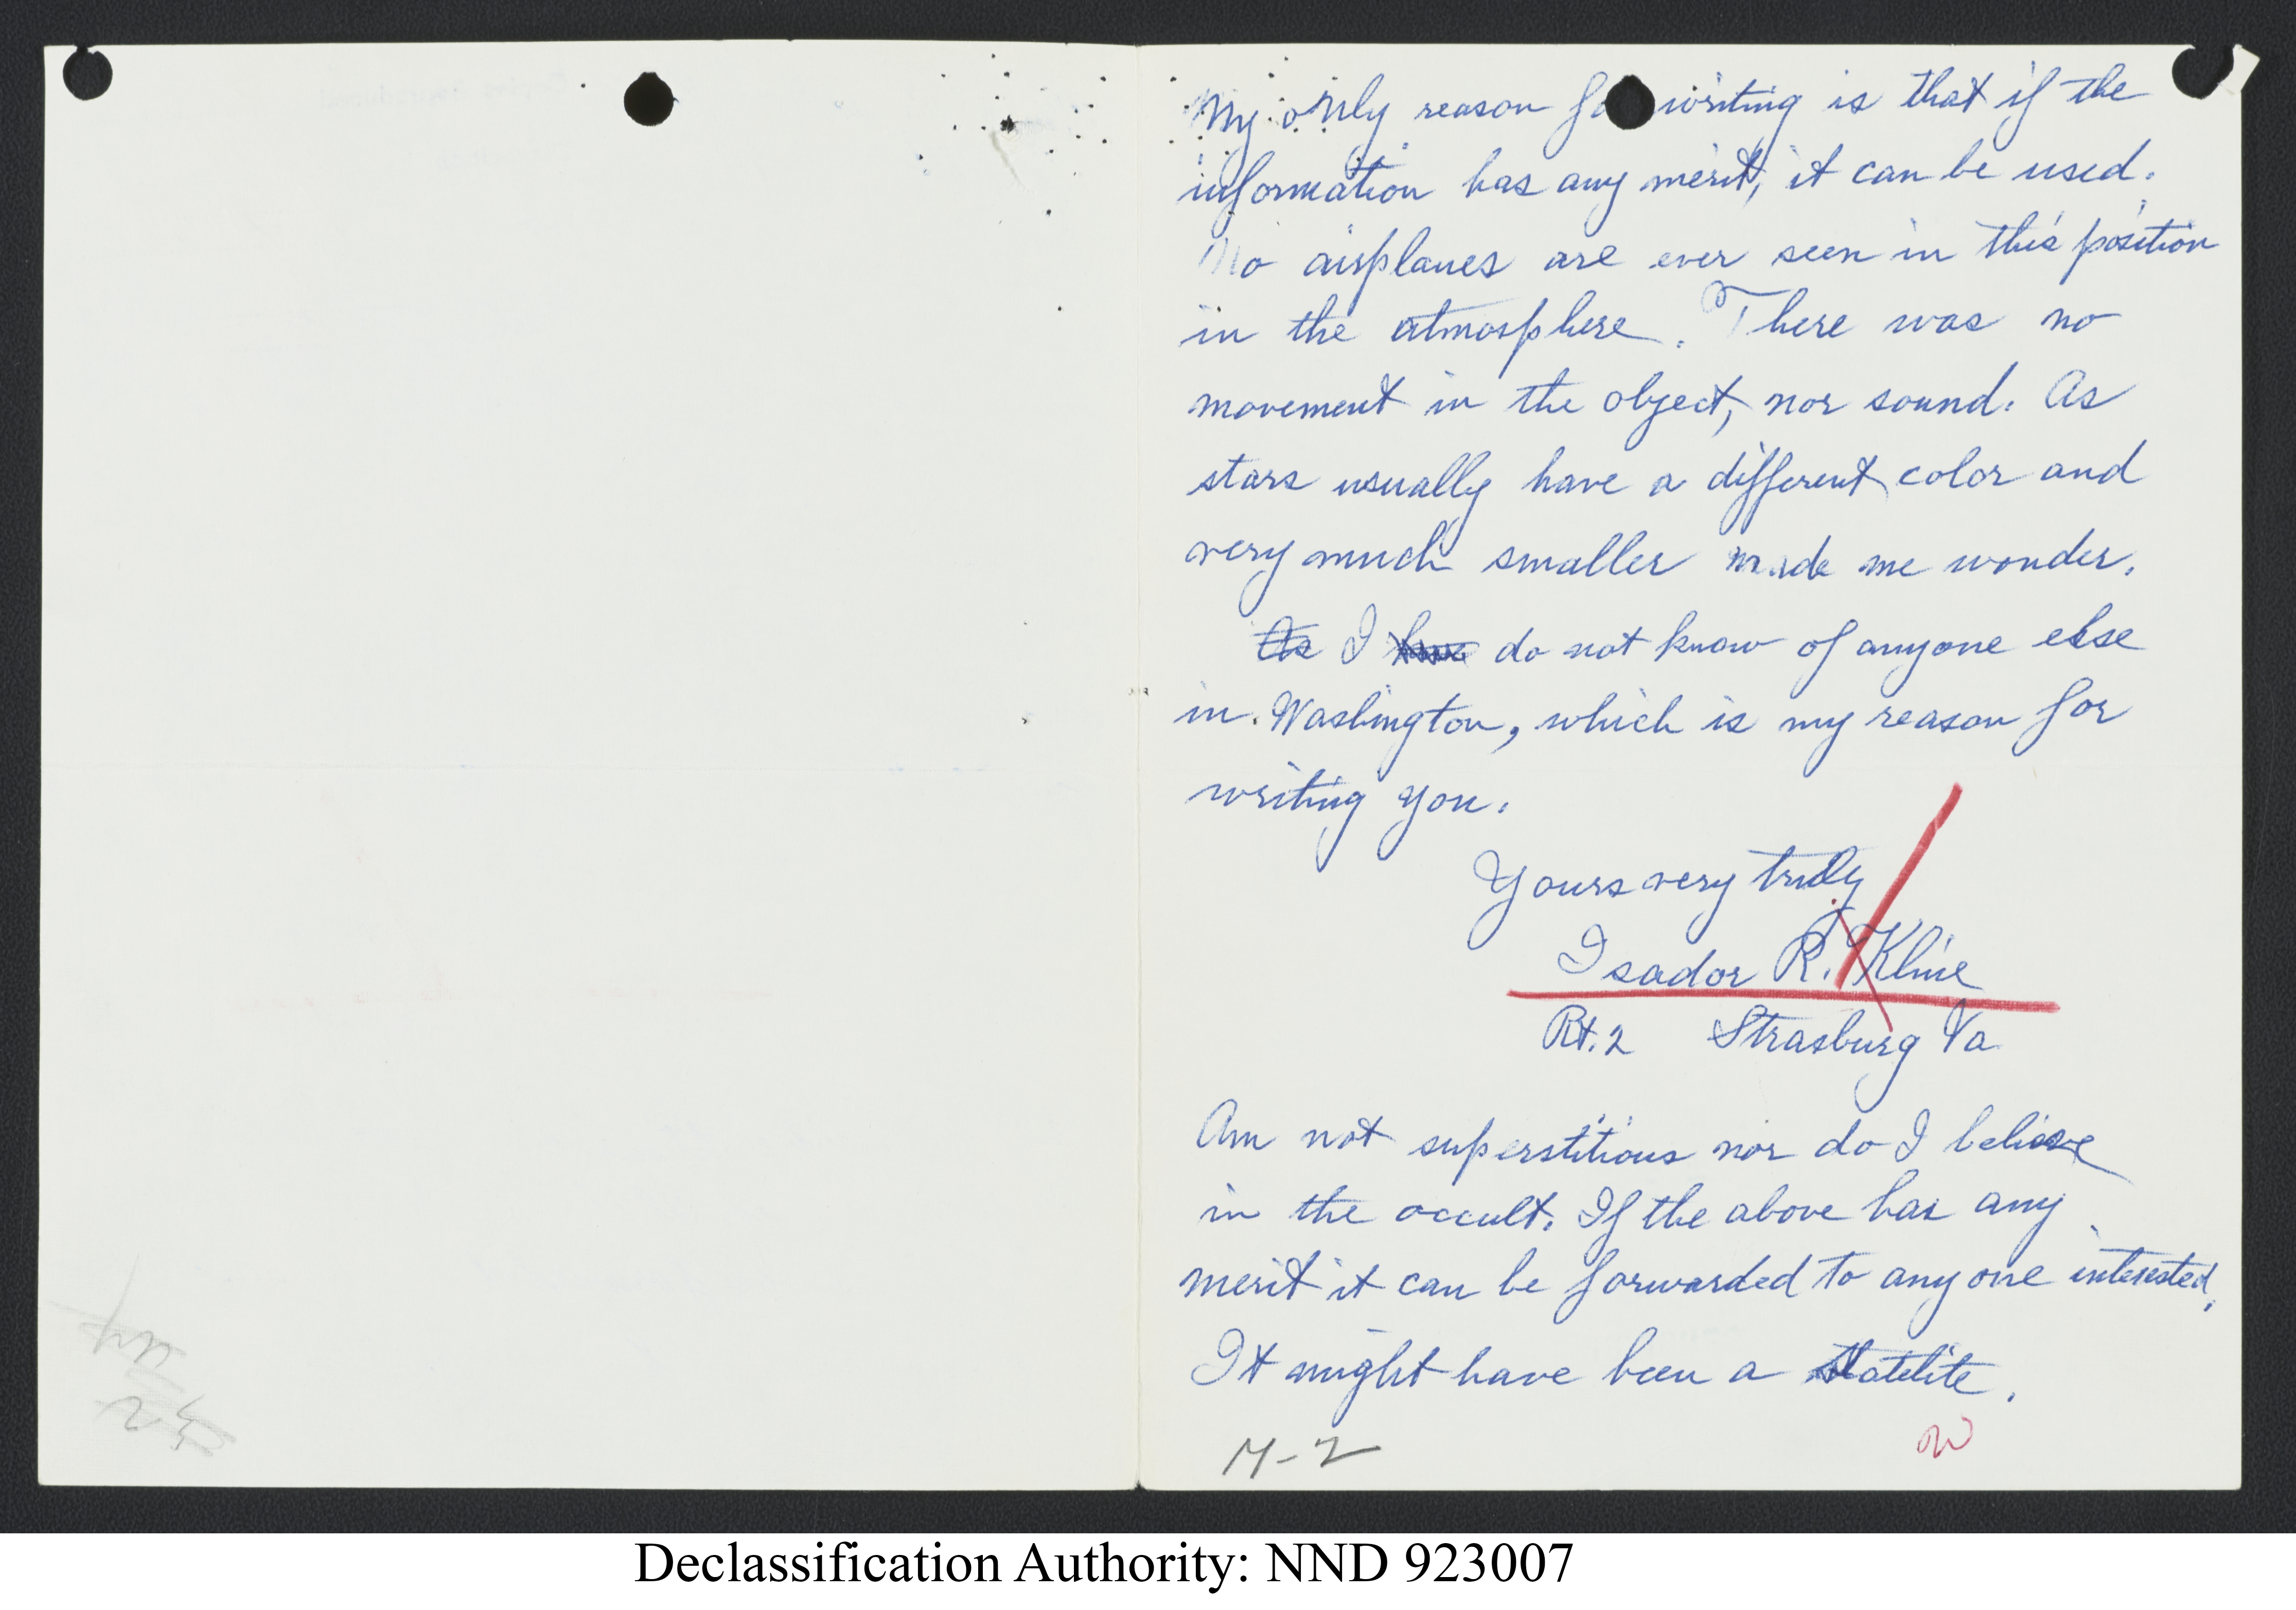 My only reason for writing is that if the
information has any merit, it can be used.
No airplanes are ever seen in this position
in the atmosphere. There was no
movement in the object, nor sound. As
stars usually have a different color and
very much smaller made me wonder.
As I have do not know of anyone else
in Washington, which is my reason for
writing you.
Yours very truly
Isador R. Kline
Rt. 2 Strasburg Va
Am not superstitious nor do I believe
in the occult. If the above has any
merit it can be forwarded to any one interested.
It might have been a statelite.
M-2
Declassification Authority: NND 923007